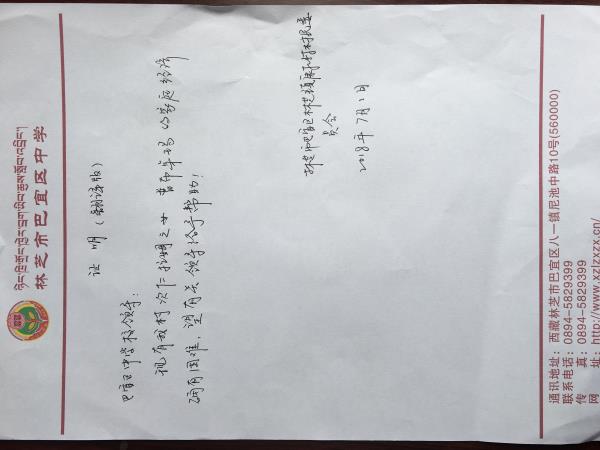 林芝市巴宜区中学
证 明 (翻译版)
巴宜区中学校领导:
现有我村次仁拉姆之女 普布卓玛 的家庭经济
确有困难,望有关领导给予帮助!
林芝市巴宜区林芝镇 村村民委
员会
2018年7月2日
通讯地址: 西藏林芝市巴宜区八一镇尼池中路10号(560000)
联系电话: 0894-5829399
传 真: 0894-5829399
网 址: http://www.xzlzxzx.cn/